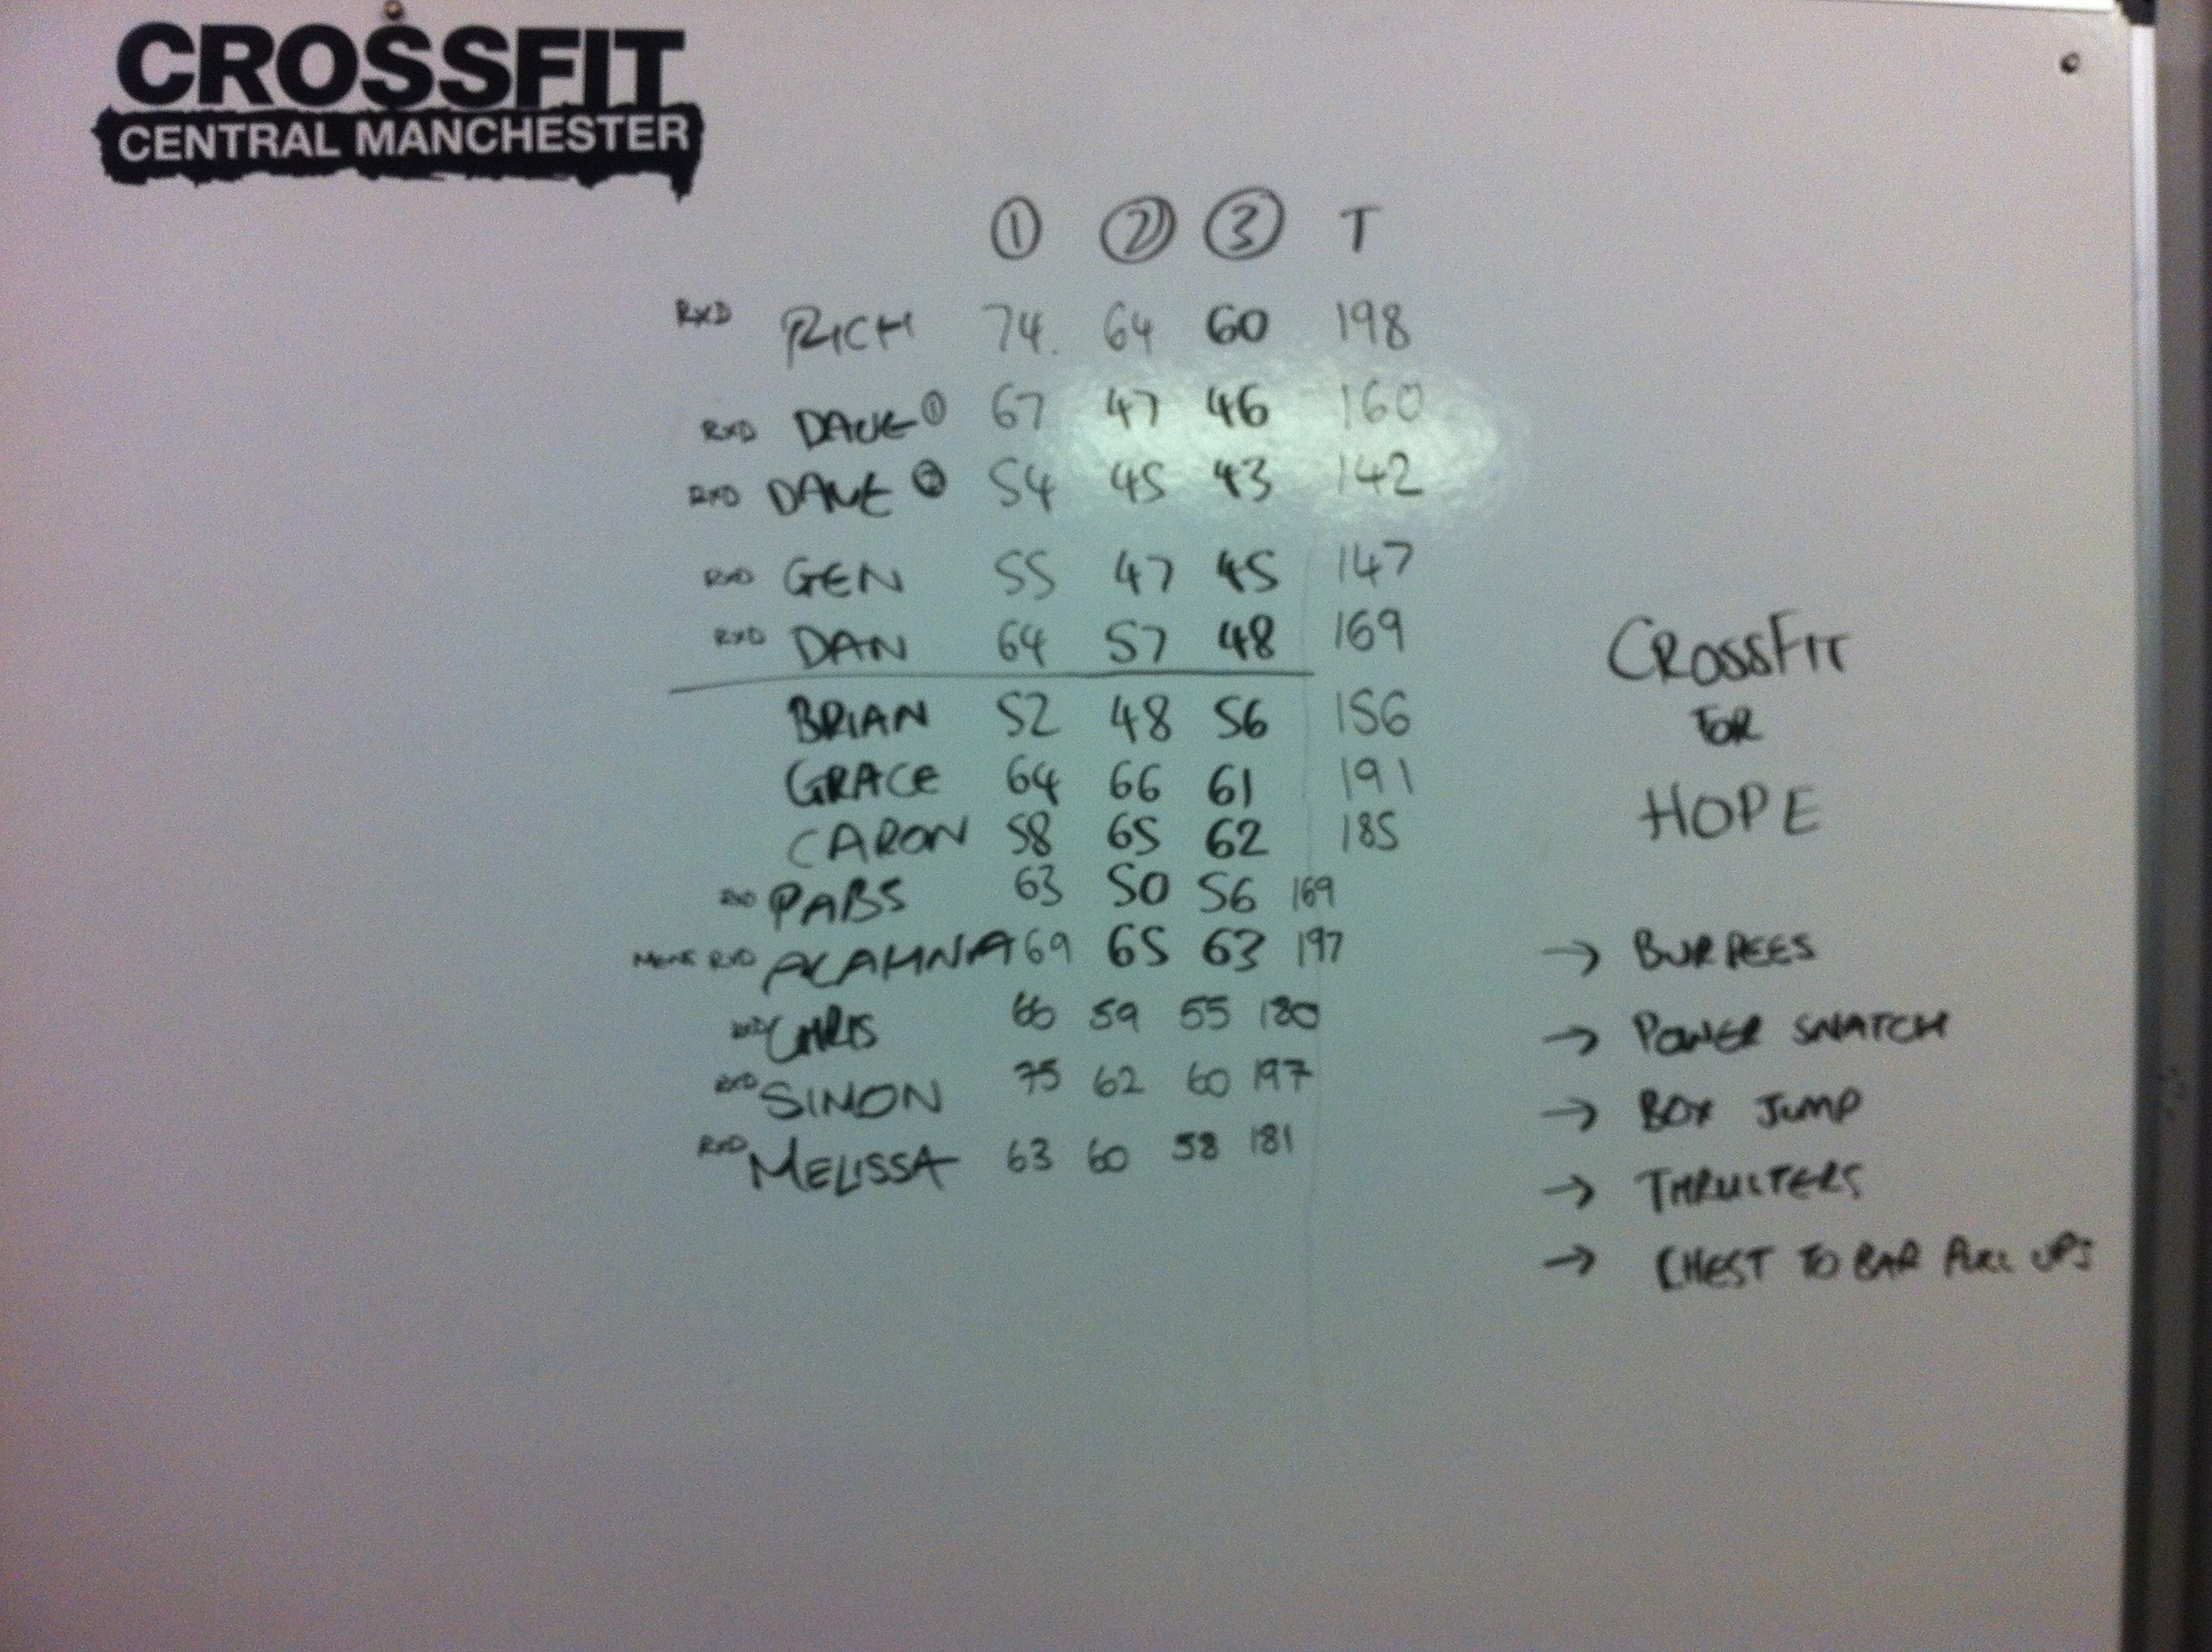 CROSSFIT
CENTRAL MANCHESTER
① ② ③ T
RXD RICH 74. 64 60 198
RXD DAVE ① 67 47 46 160
RXD DAVE ② 54 45 43 142
RXD GEN 55 47 45 147
RXD DAN 64 57 48 169
BRIAN 52 48 56 156
GRACE 64 66 61 191
CARON 58 65 62 185
RXD PABS 63 50 56 169
MENS RXD ALAHNA 69 65 63 197
RXD CHRIS 66 59 55 180
RXD SIMON 75 62 60 197
RXD MELISSA 63 60 58 181
CROSSFIT
FOR
HOPE
→ BURPEES
→ POWER SNATCH
→ BOX JUMP
→ THRUSTERS
→ CHEST TO BAR PULL UPS